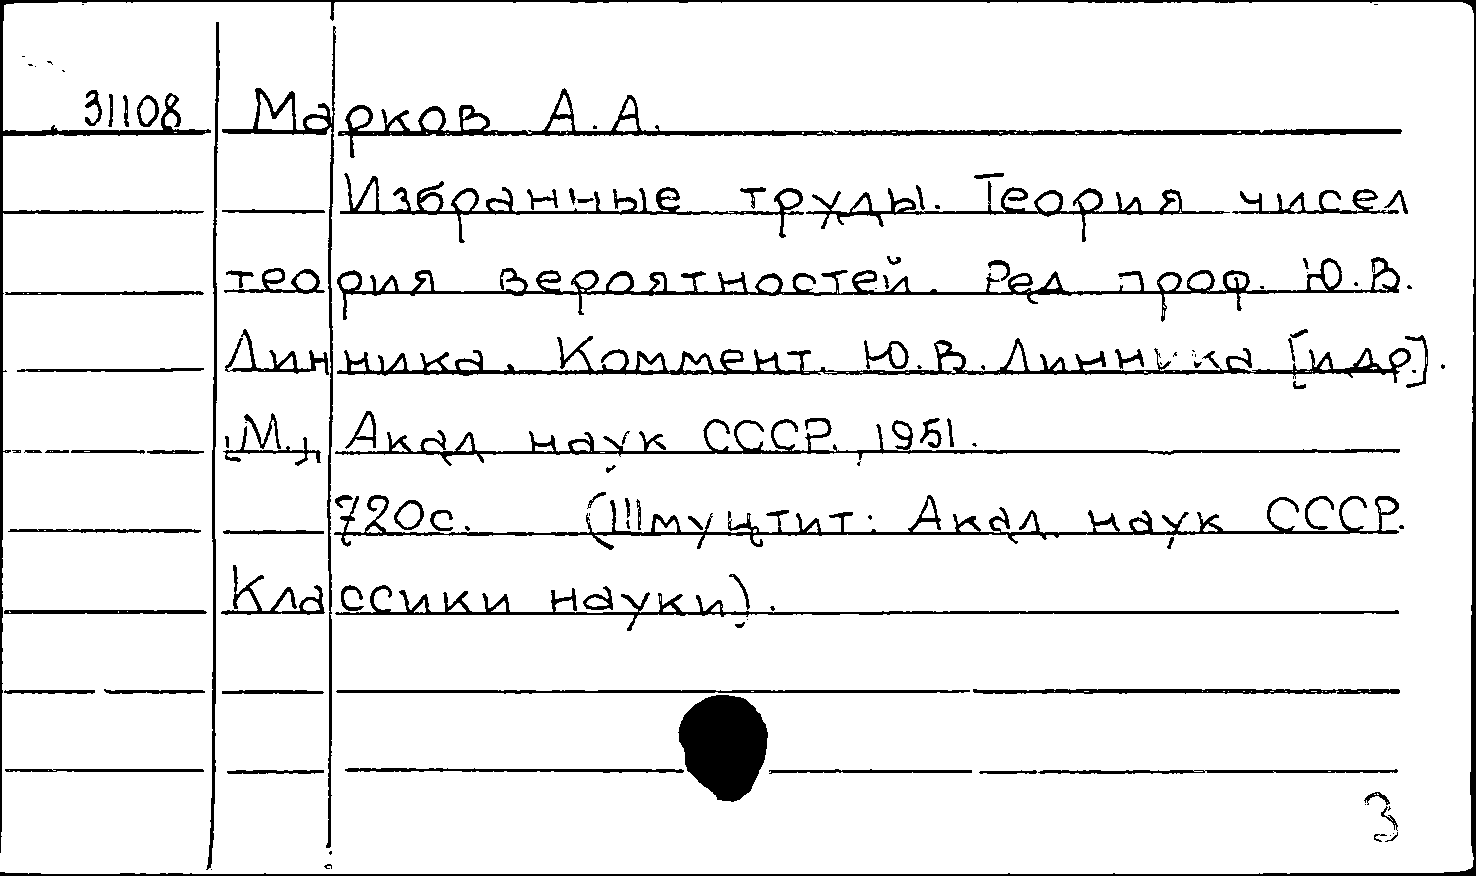 31108 Марков А.А.
Избранные труды. Теория чисел
теория вероятностей. Ред проф. Ю.В.
Линника. Коммент. Ю.В. Линника [и др.].
[М.], Акад наук СССР., 1951.
720с. (Шмуцтит: Акад. наук СССР.
Классики науки).
3